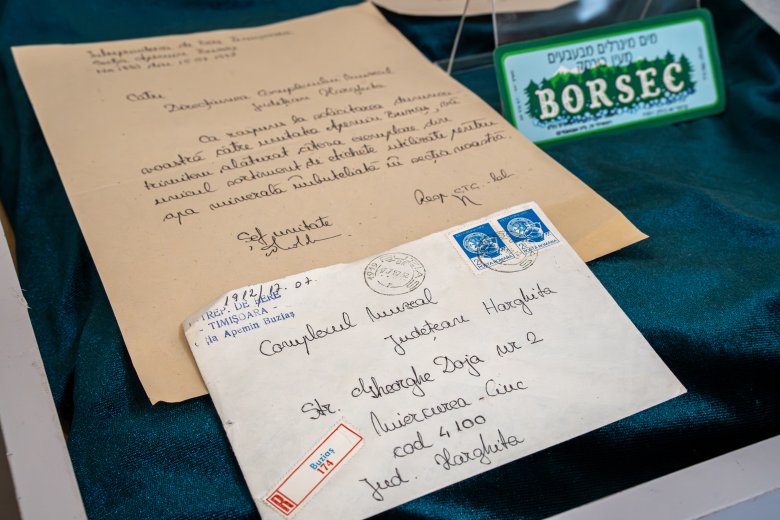 Întreprinderea de Bere Timișoara
Secția Apemin Buziaș
Către
Direcțiunea Complexului Muzeal
Județean Harghita
Ca răspuns la solicitarea
voastră către unitatea Apemin Buziaș, vă
trimitem alăturat câteva exemplare din
unicul sortiment de etichete utilizate pentru
apa minerală îmbuteliată în secția noastră
Șef unitate
Resp. C.T.C.
מים מינרלים מבעבעים
BORSEC
1982/17.07.
TREP. DE BERE
- TIMIȘOARA -
ția Apemin Buziaș
POSTA ROMANA
POSTA ROMANA
Complexul Muzeal
Județean Harghita
Str. Gheorghe Doja nr 2
Miercurea-Ciuc
cod 4100
Jud. Harghita
R
Buziaș
174